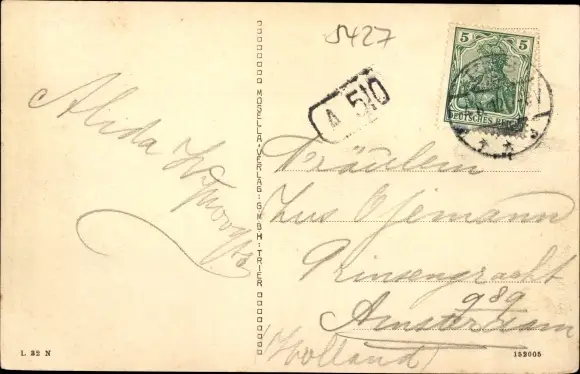 5427
5 5
DEUTSCHES REICH
A 510
Alida
MOSELLA-VERLAG G.M.B.H. TRIER
Fräulein
Zus Ojemann
Prinsengracht
989
Amsterdam
(Holland)
L 32 N
152005